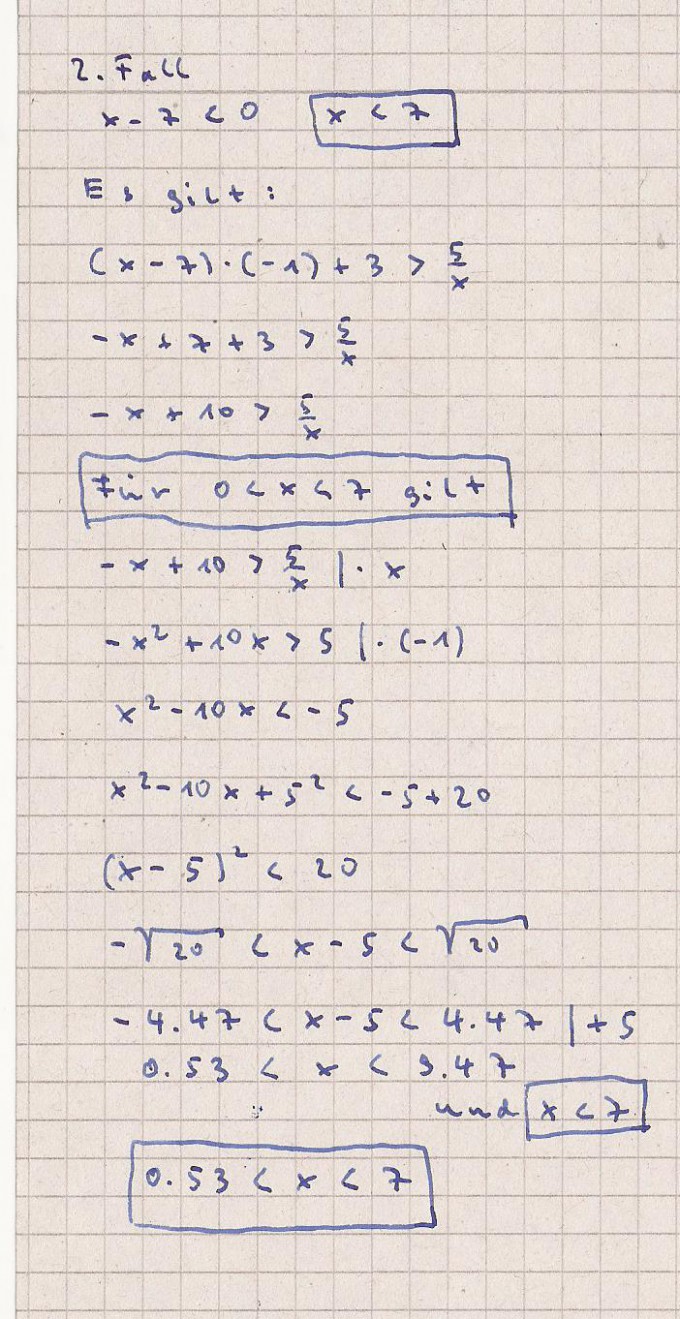 2. Fall
x - 7 < 0 x < 7
Es gilt:
(x - 7) · (-1) + 3 > 5/x
-x + 7 + 3 > 5/x
-x + 10 > 5/x
Für 0 < x < 7 gilt
-x + 10 > 5/x | · x
-x² + 10x > 5 | · (-1)
x² - 10x < -5
x² - 10x + 5² < -5 + 20
(x - 5)² < 20
-√20 < x - 5 < √20
-4.47 < x - 5 < 4.47 | + 5
0.53 < x < 9.47
und x < 7
0.53 < x < 7